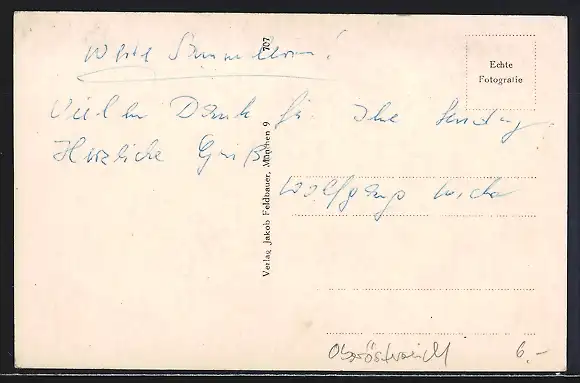 Werte Sammlerin!
Vielen Dank für Ihre Sendung.
Herzliche Grüße
Wolfgang
Echte
Fotografie
Verlag Jakob Feldbauer, München 9
707
Oberösterreich 6.-